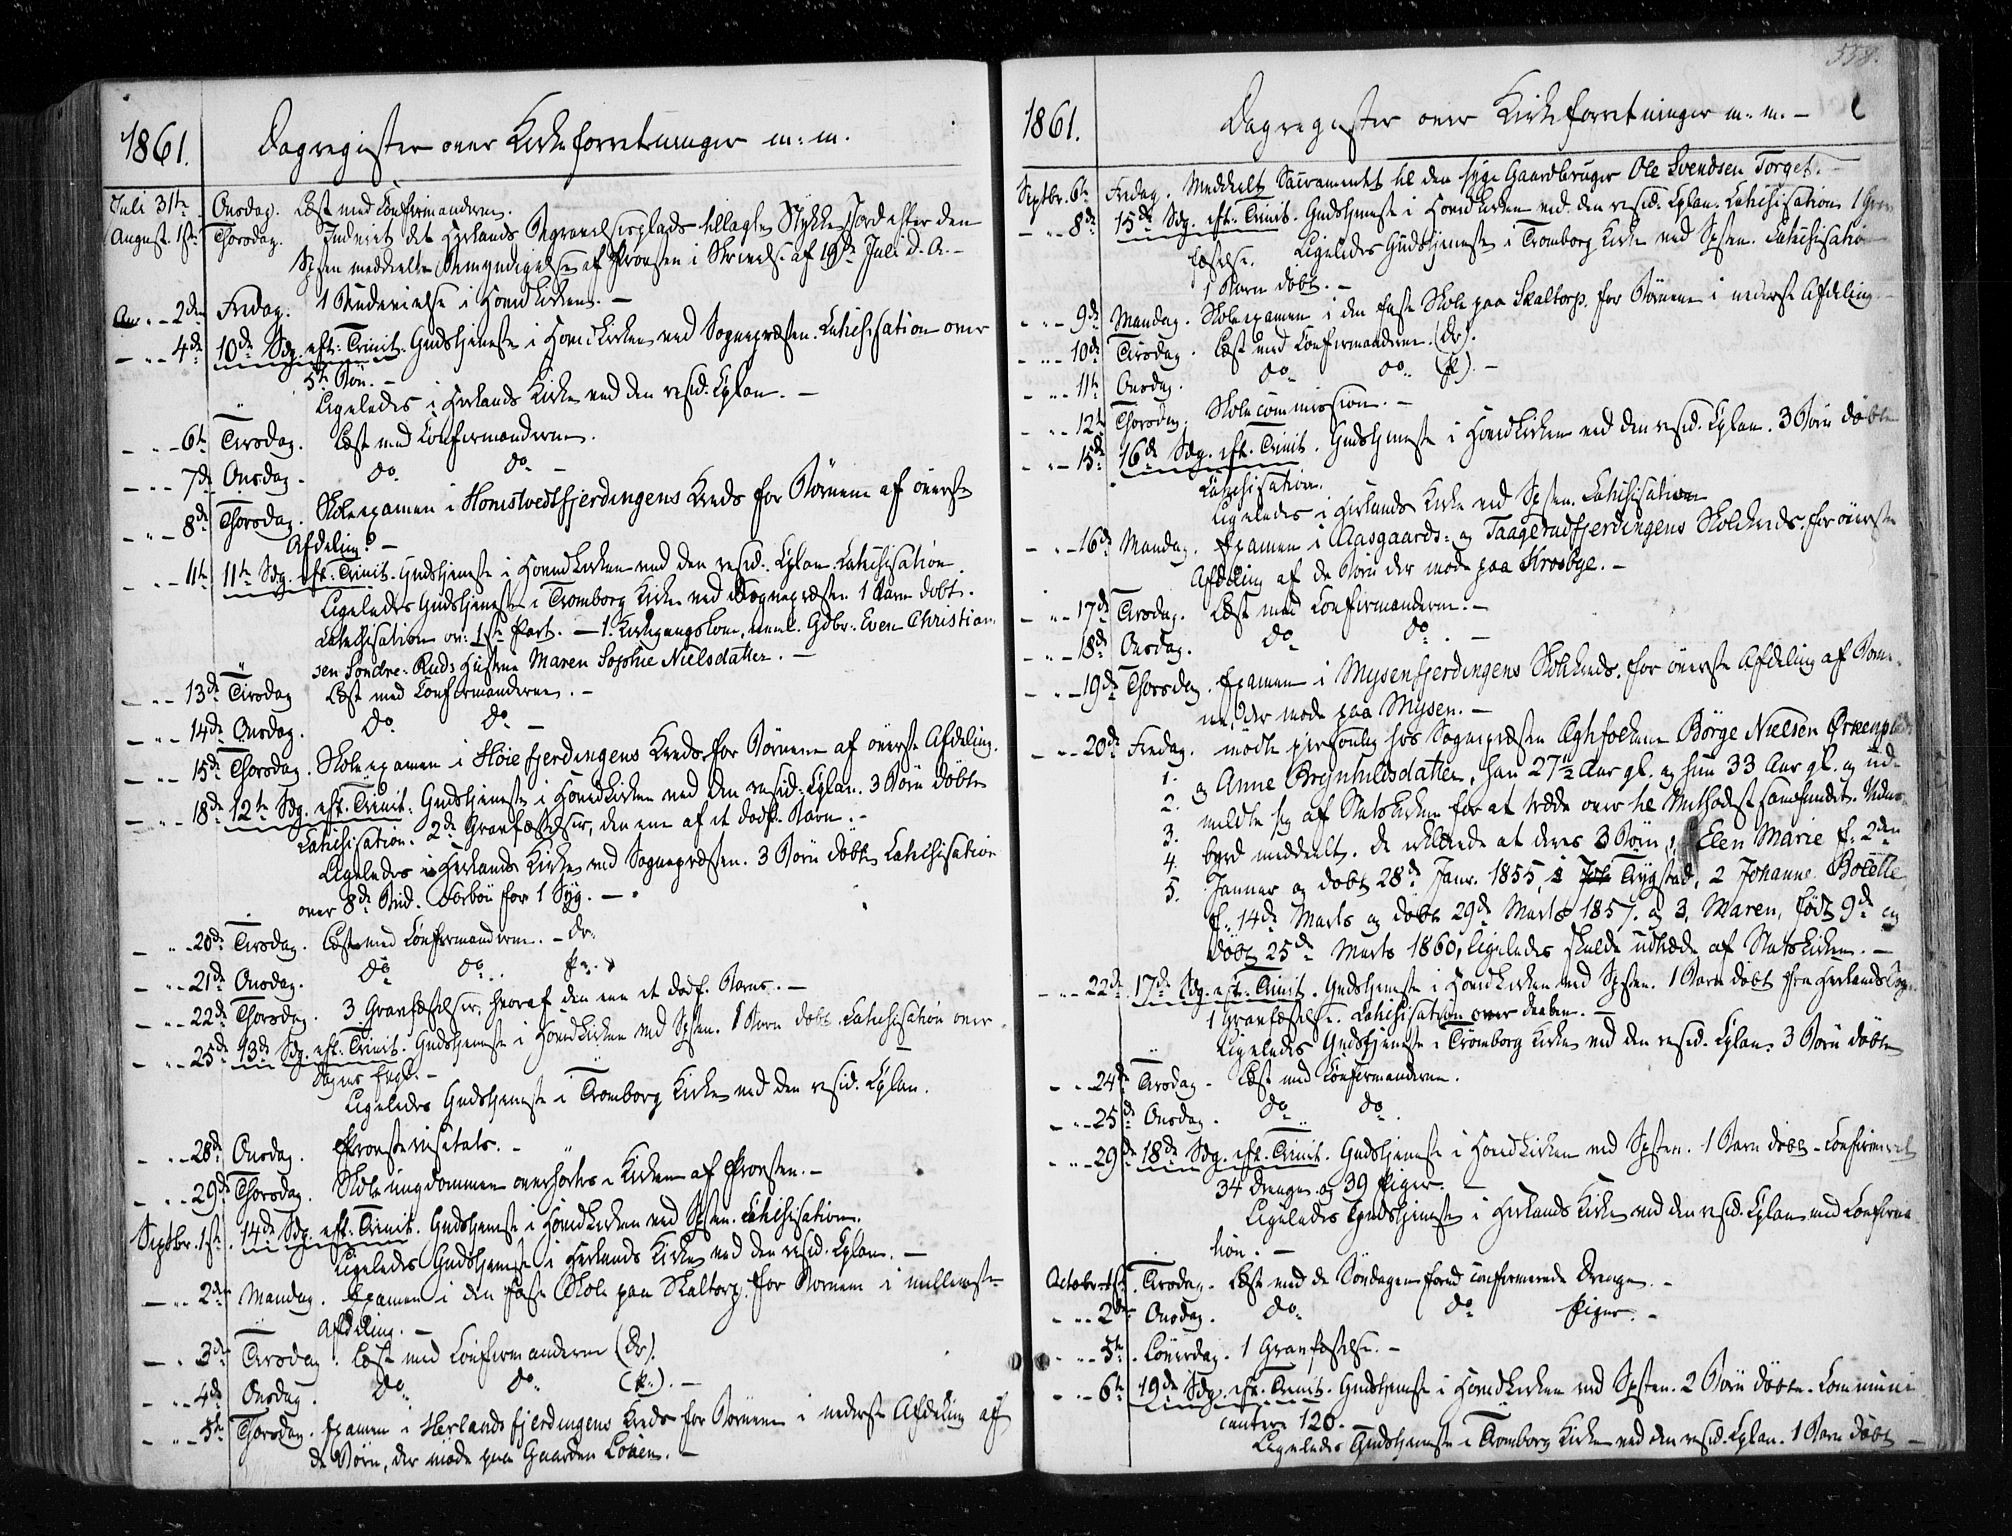 1861.
Dagregister over Kirkeforretninger m: m.
Juli 31te Onsdag. Læst med Confirmanderne.
August. 1ste Thorsdag. Indviet det Herlands Begravelsesplads tillagte Stykke Jord efter den
Spsten meddeelte Bemyndigelse af Provsten i Skrivelse af 19de Juli d. A. -
2den Fredag. 1 Brudevielse i Hovedkirken. -
- " - 4de 10de Sdg. eft: Trinit. Gudstjeneste i Hovedkirken ved Sognepræsten. Catechisation over
5te Bøn. -
Ligeledes i Herlands Kirke ved den resid. Cplan. -
- " - 6te Tirsdag. Læst med Confirmanderne.
- " - 7de Onsdag. do do -
- " - 8de Thorsdag. Skoleexamen i Homstvedtfjerdingens Kreds for Børnene af øverste
Afdeling. -
- " - 11te 11te Sdg. eft: Trinit. Gudstjeneste i Hovedkirken ved den resid. Cplan. Catechisation.
Ligeledes Gudstjeneste i Tromborg Kirke ved Sognepræsten. 1 Barn døbt.
Catechisation ov: 1ste Part. - 1. Kirkegangskone, neml. Gdbr: Even Christian-
sen Søndre-Ruds Hustru Maren Sophie Nielsdatter. -
- " - 13de Tirsdag Læst med Confirmanderne. -
- " - 14de Onsdag. do do -
- " - 15de Thorsdag. Skoleexamen i Høiefjerdingens Kreds for Børnene af øverste Afdeling.
- " - 18de 12te Sdg. eft: Trinit: Gudstjeneste i Hovedkirken ved den resid: Cplan. 3 Børn døbte
Catechisation. 2de Gravfæstelser, den ene af et dødf. Barn. -
Ligeledes i Herlands Kirke ved Sognepræsten. 3 Børn døbte Catechisation
over 8de Bud. Forbøn for 1 Syg. -
- " - 20de Tirsdag. Læst med Confirmanderne. - Dr.
- " - 21de Onsdag. do do P.
- " - 22de Thorsdag. 3 Gravfæstelser, hvoraf den ene et dødf. Barns. -
- " - 25de 13de Sdg. eft: Trinit. Gudstjeneste i Hovedkirken ved Spsten. 1 Barn døbt. Catechisation over
Dagens Evgl. -
Ligeledes Gudstjeneste i Tromborg Kirke ved den resid. Cplan.
- " - 28de Onsdag. Provstevisitats. -
- " - 29de Thorsdag. Skoleungdommen overhørtes i Kirken af Provsten. -
Septbr. 1ste. 14de Sdg. eft: Trinit. Gudstjeneste i Hovedkirken ved Spsten. Catechisation.
Ligeledes Gudstjeneste i Herlands Kirke ved den resid. Cplan. -
- " - 2den Mandag. Examen i den faste Skole paa Skaltorp for Børnene i mellemste
Afdeling. -
- " - 3de Tirsdag. Læst med Confirmanderne (Dr).
- " - 4de Onsdag. do do (P.). -
- " - 5te Thorsdag. Examen i Herlandsfjerdingens Kreds for Børnene i nederste Afdeling af
de Børn, der møde paa Gaarden Løken. -
558.
1861.
Dagregister over Kirkeforretninger m: m. -
Septbr. 6te Fredag. Meddeelt Sacramentet til den syge Gaardbruger Ole Svendsen Torget. -
- " - 8de 15de Sdg. eft: Trinit. Gudstjeneste i Hovedkirken ved den resid: Cplan. Catechisation. 1 Grav-
fæstelse. Ligeledes Gudstjeneste i Tromborg Kirke ved Spsten. Catechisation
1 Barn døbt. -
- " - 9de Mandag. Skoleexamen i den faste Skole paa Skaltorp. for Børnene i nederste Afdeling. -
- " - 10de Tirsdag. Læst med Confirmanderne. (Dr).
- " - 11te Onsdag. do do (P). -
- " - 12te Thorsdag. Skolecommission. -
- " - 15de 16de Sdg. eft. Trinit. Gudstjeneste i Hovedkirken ved den resid. Cplan. 3 Børn døbte
Catechisation.
Ligeledes i Herlands Kirke ved Spsten. Catechisation
- " - 16de Mandag. Examen i Aasgaards- og Taagerudfjerdingens Skolekreds. for øverste
Afdeling af de Børn der møde paa Krosbye. -
- " - 17de Tirsdag. Læst med Confirmanderne. -
- " - 18de Onsdag. do do -
- " - 19de Thorsdag. Examen i Mysenfjerdingens Skolekreds. for øverste Afdeling af Børne-
ne, der møde paa Mysen. -
- " - 20de Fredag. mødte personlig hos Sognepræsten Ægtefolkene Børge Nielsen
1. og Anne Brynhildsdatter, han 27½ Aar gl. og hun 33 Aar gl. og ud-
2. meldte sig af Statskirken for at træde over til Methodistsamfundet. Vidnes-
3. byrd meddeelt. De erklærede at deres 3 Børn, 1, Elen Marie f. 2den
4. Januar og døbt 28de Janr. 1855, i Trygstad, 2 Johanne Bolette,
5. f. 14de Marts og døbt 29de Marts 1857. og 3, Maren, født 9de og
døbt 25de Marts 1860, ligeledes skulde udtræde af Statskirken. -
- " - 22de 17de Sdg. eft. Trinit. Gudstjeneste i Hovedkirken ved Spsten. 1 Barn døbt fra Herlands Sogn.
1 Gravfæstelse. Catechisation over Daaben. -
Ligeledes Gudstjeneste i Tromborg Kirke ved den resid. Cplan. 3 Børn døbte
- " - 24de Tirsdag. Læst med Confirmanderne.
- " - 25de Onsdag. do do
- " - 29de 18de Sdg. eft. Trinit. Gudstjeneste i Hovedkirken ved Spsten. 1 Barn døbt - Confirmeret
34 Drenge og 39 Piger. -
Ligeledes Gudstjeneste i Herlands Kirke ved den resid. Cplan med Confirma-
tion. -
October 1ste. Tirsdag. Læst med de Søndagen forud confirmerede Drenge. -
- " - 2den Onsdag. do do Piger. -
- " - 5te. Løverdag. 1 Gravfæstelse. -
- " - 6te 19de Sdg. eft. Trinit. Gudstjeneste i Hovedkirken ved Spsten. 2 Børn døbte. Communi-
cantere 120. -
Ligeledes Gudstjeneste i Tromborg Kirke ved den resid. Cplan. 1 Barn døbt -